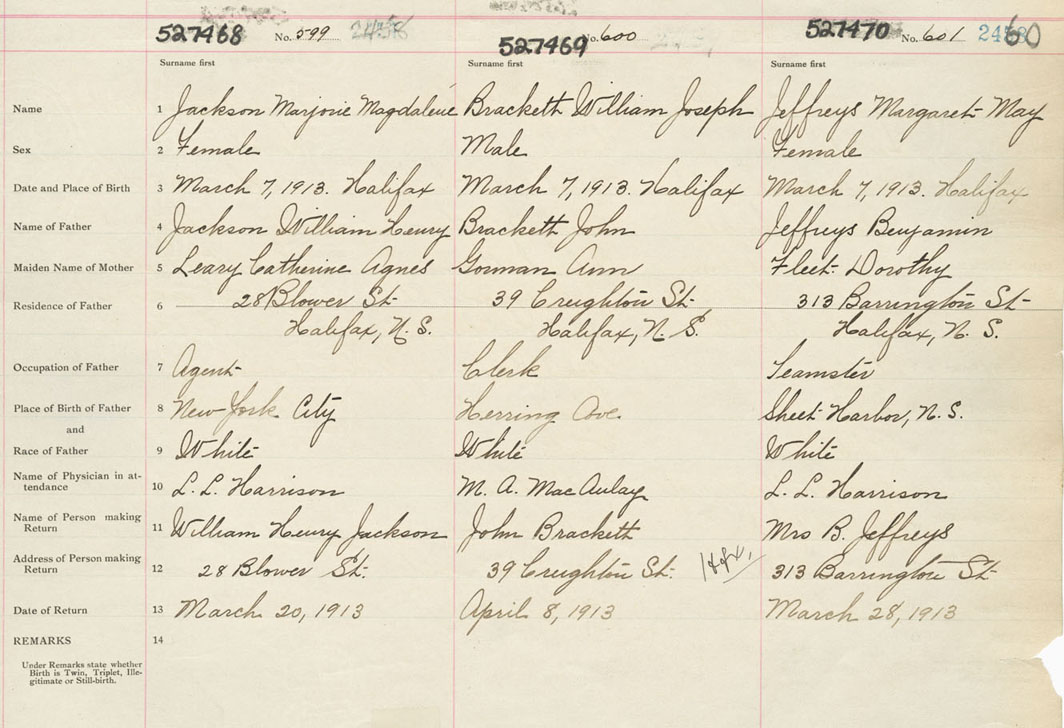 527468 No. 599 2458 527469 No. 600 527470 No. 601 60
Surname first Surname first Surname first
Name 1 Jackson Marjorie Magdalene Brackett William Joseph Jeffreys Margaret May
Sex 2 Female Male Female
Date and Place of Birth 3 March 7, 1913. Halifax March 7, 1913. Halifax March 7, 1913. Halifax
Name of Father 4 Jackson William Henry Brackett John Jeffreys Benjamin
Maiden Name of Mother 5 Leary Catherine Agnes Gorman Ann Fleet Dorothy
Residence of Father 6 28 Blower St. 39 Creighton St. 313 Barrington St
Halifax, N. S. Halifax, N. S. Halifax, N. S.
Occupation of Father 7 Agent Clerk Teamster
Place of Birth of Father 8 New York City Herring Cove Sheet Harbor, N. S.
and
Race of Father 9 White White White
Name of Physician in at-
tendance 10 L. L. Harrison M. A. MacAulay L. L. Harrison
Name of Person making
Return 11 William Henry Jackson John Brackett Mrs B. Jeffreys
Address of Person making
Return 12 28 Blower St. 39 Creighton St. Hfx. 313 Barrington St
Date of Return 13 March 20, 1913 April 8, 1913 March 28, 1913
REMARKS 14
Under Remarks state whether
Birth is Twin, Triplet, Ille-
gitimate or Still-birth.